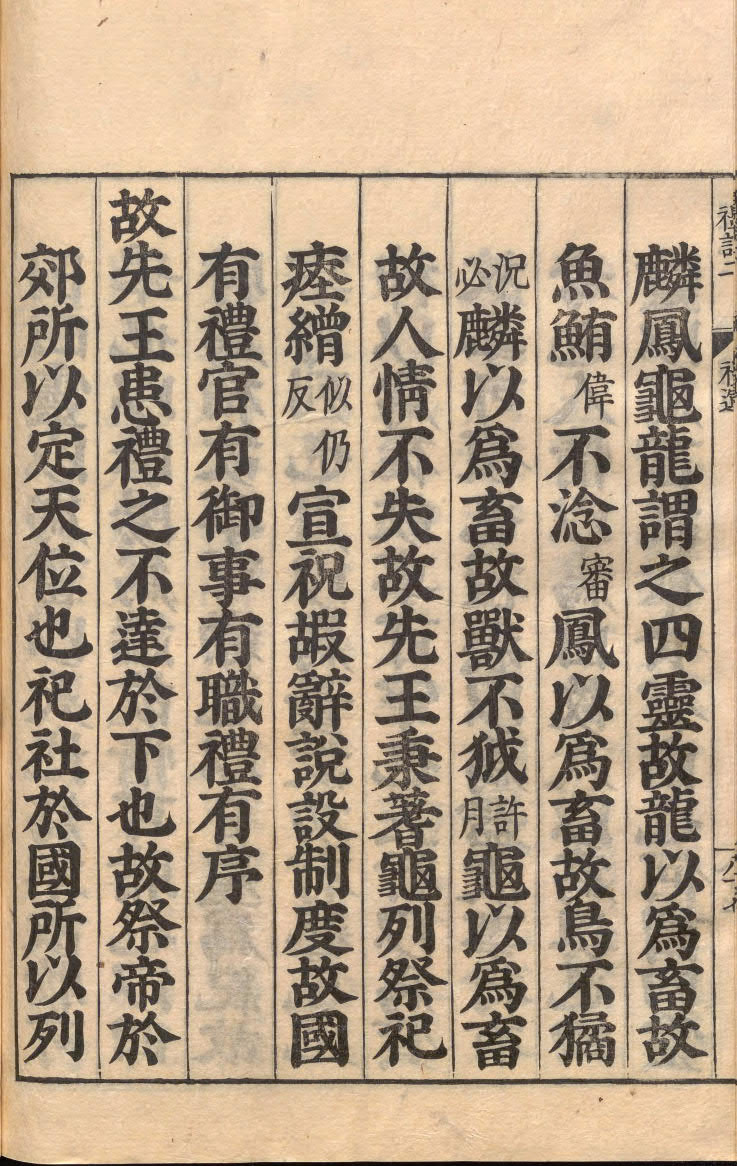 麟鳳龜龍謂之四靈故龍以爲畜故
魚鮪偉不淰審鳳以爲畜故鳥不獝
況必麟以爲畜故獸不狘許月龜以爲畜
故人情不失故先王秉蓍龜列祭祀
瘞繒似仍反宣祝嘏辭說設制度故國
有禮官有御事有職禮有序
故先王患禮之不達於下也故祭帝於
郊所以定天位也祀社於國所以列